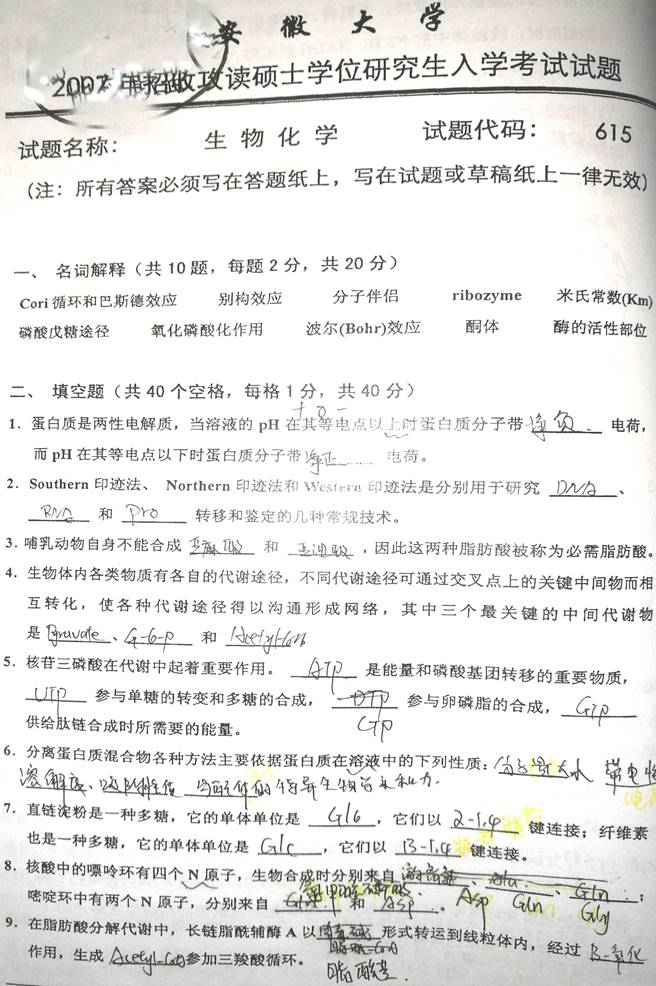 安徽大学
2007年招收攻读硕士学位研究生入学考试试题
试题名称： 生物化学 试题代码： 615
（注：所有答案必须写在答题纸上，写在试题或草稿纸上一律无效）
一、 名词解释（共10题，每题2分，共20分）
Cori循环和巴斯德效应 别构效应 分子伴侣 ribozyme 米氏常数(Km)
磷酸戊糖途径 氧化磷酸化作用 波尔(Bohr)效应 酮体 酶的活性部位
二、 填空题（共40个空格，每格1分，共40分）
+ 0 -
1．蛋白质是两性电解质，当溶液的pH在其等电点以上时蛋白质分子带 净负 电荷，
而pH在其等电点以下时蛋白质分子带 净正 电荷。
2．Southern印迹法、 Northern印迹法和Western印迹法是分别用于研究 DNA 、
RNA 和 pro 转移和鉴定的几种常规技术。
3．哺乳动物自身不能合成 亚麻酸 和 亚油酸 ，因此这两种脂肪酸被称为必需脂肪酸。
4．生物体内各类物质有各自的代谢途径，不同代谢途径可通过交叉点上的关键中间物而相
互转化，使各种代谢途径得以沟通形成网络，其中三个最关键的中间代谢物
是 Pyruvate 、 G-6-P 和 Acetyl-CoA
5．核苷三磷酸在代谢中起着重要作用。 ATP 是能量和磷酸基团转移的重要物质，
UTP 参与单糖的转变和多糖的合成， 参与卵磷脂的合成， GTP
CTP
供给肽链合成时所需要的能量。
6．分离蛋白质混合物各种方法主要依据蛋白质在溶液中的下列性质： 分子大小 带电性
溶解度、吸附性质 对配体的特异生物学亲和力.
7．直链淀粉是一种多糖，它的单体单位是 Glc ，它们以 α-1,4 键连接；纤维素
也是一种多糖，它的单体单位是 Glc ，它们以 β-1,4 键连接。
8．核酸中的嘌呤环有四个N原子，生物合成时分别来自 、 、 Gln ；
嘧啶环中有两个N原子，分别来自 和 Asp 。 Asp Gln Gly
9．在脂肪酸分解代谢中，长链脂酰辅酶A以 形式转运到线粒体内，经过 β-氧化
作用，生成 Acetyl-CoA 参加三羧酸循环。